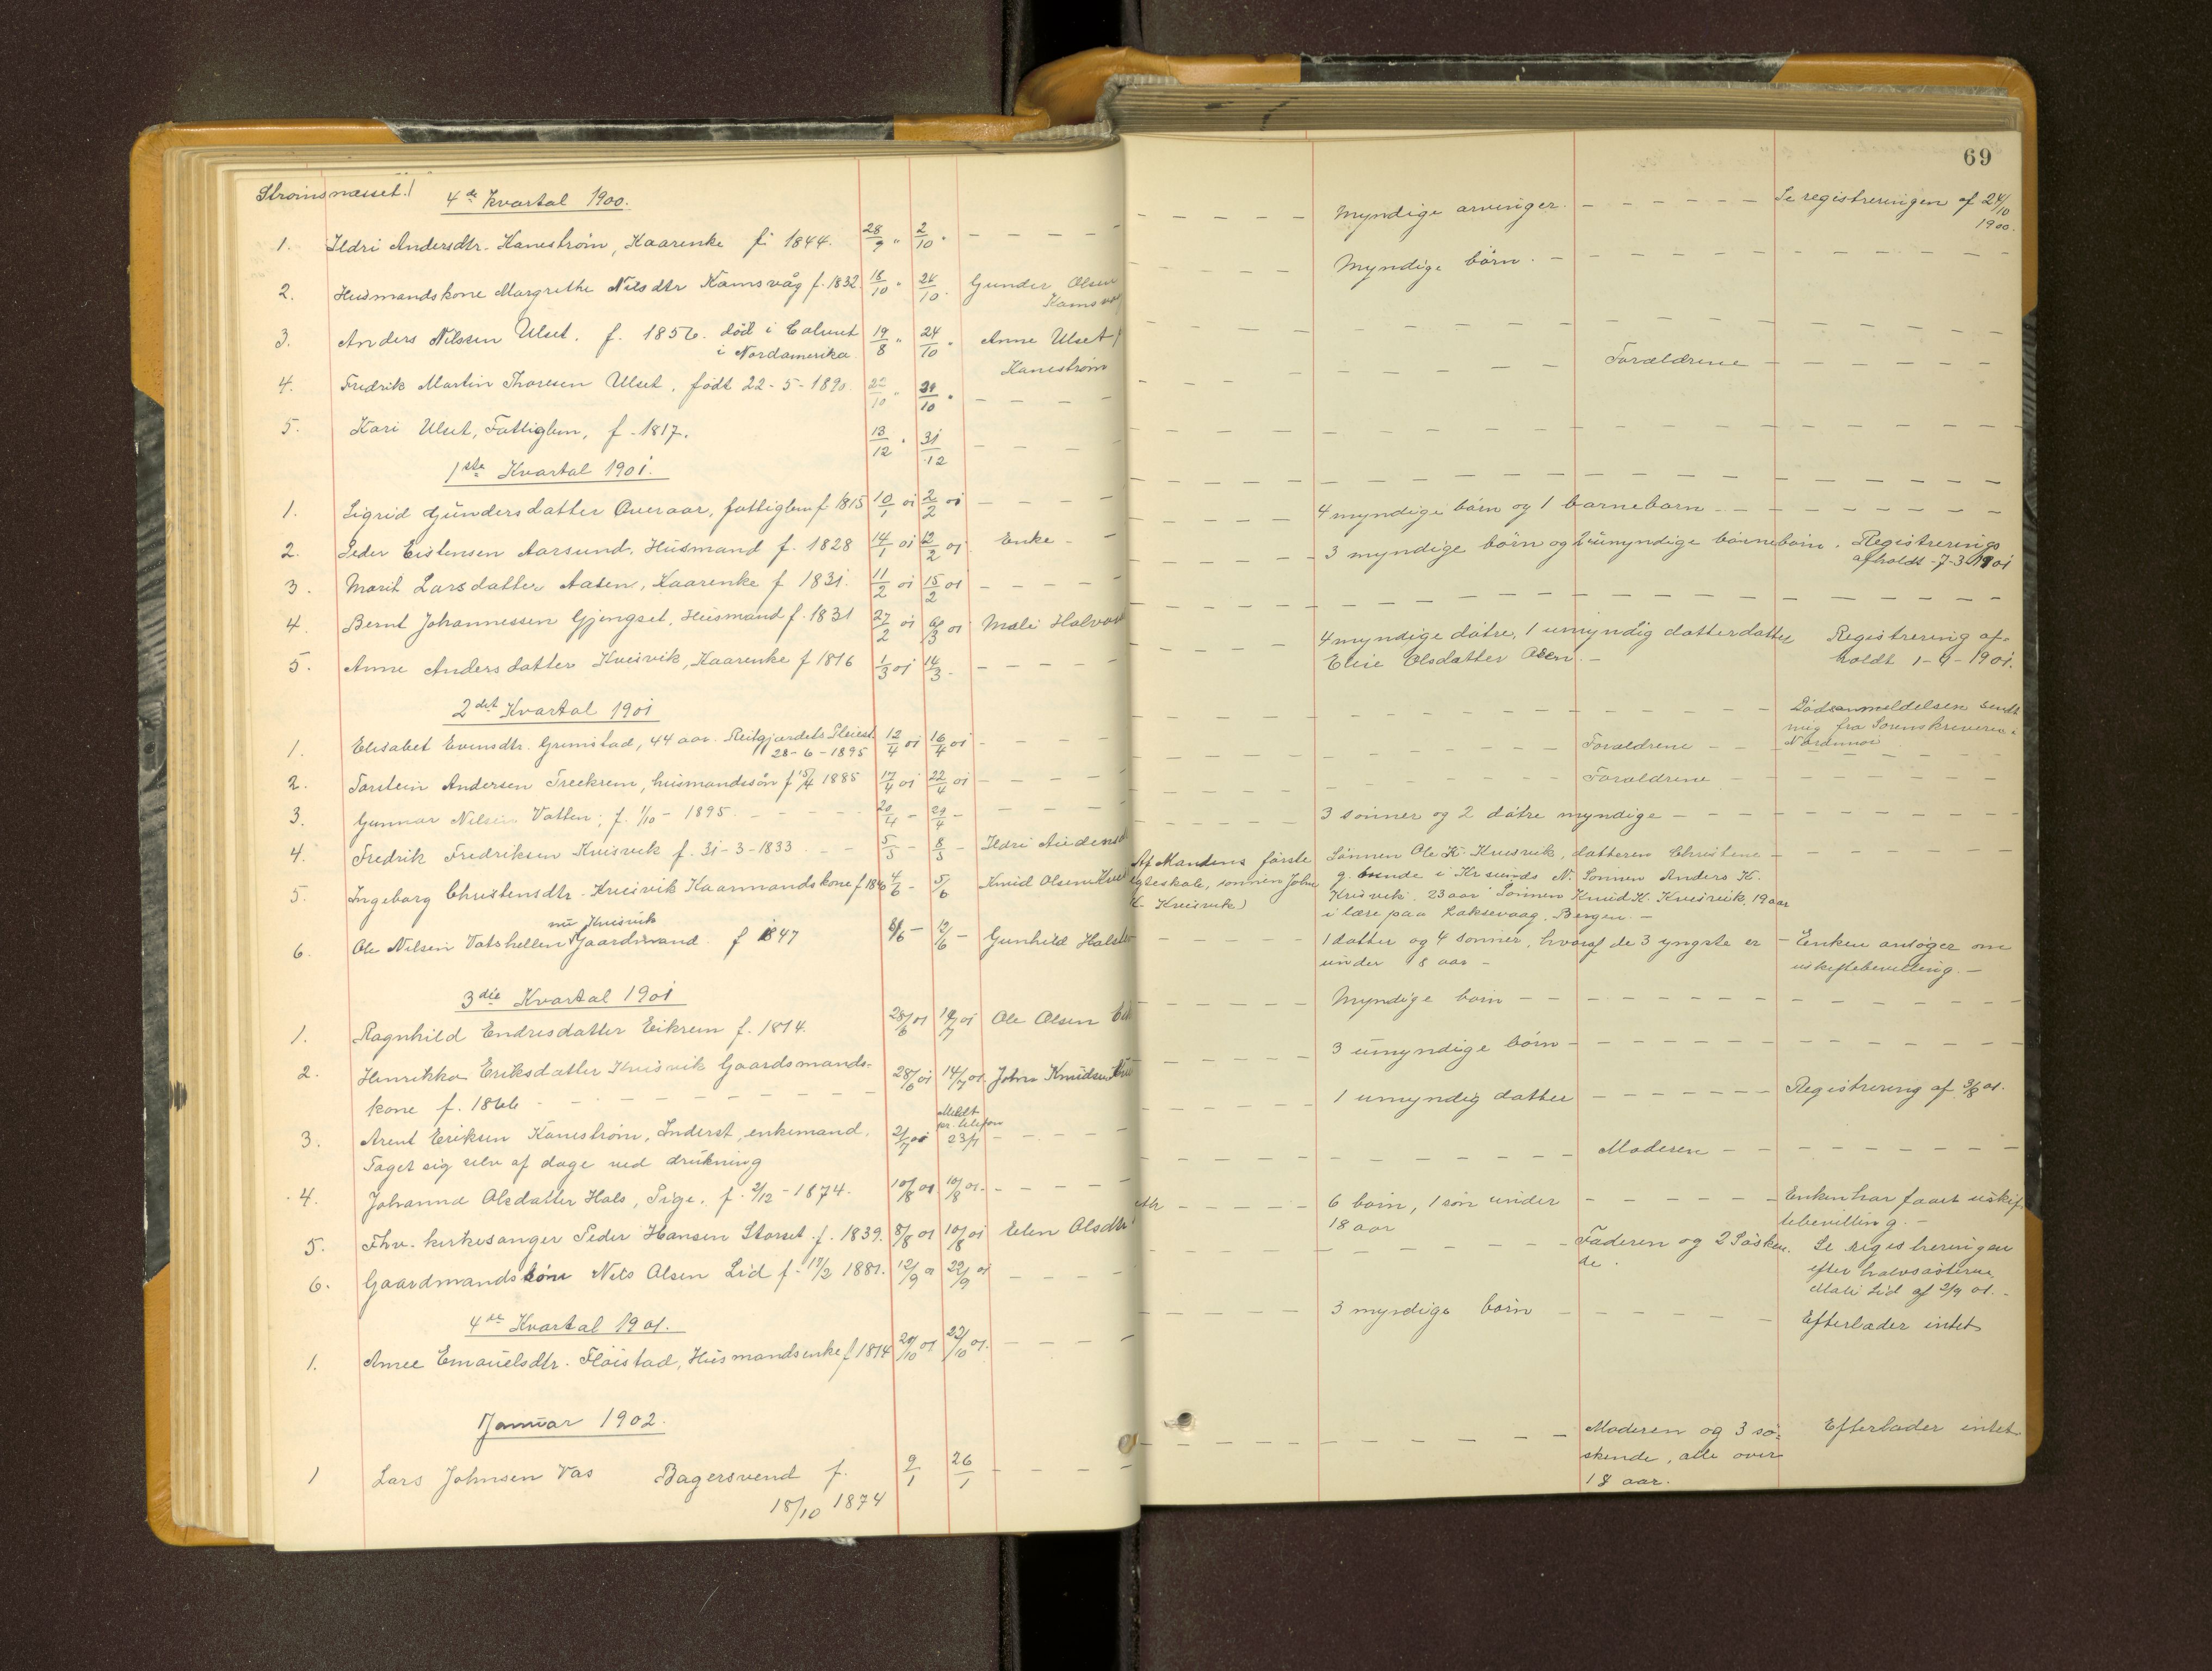 69
Strømsnæsset.
4de Kvartal 1900.
1. Ildri Andersdtr. Kanestrøm, Kaarenke f. 1844. 28/9 " 2/10 " – – – – Myndige arvinger. – – – Se registreringen af 24/10
1900.
2. Husmandskone Margrethe Nilsdtr Ramsvåg f. 1832. 18/10 " 24/10. Gunder Olsen – – – Myndige børn. – – –
3. Anders Nilssen Ulset. f. 1856. død i Calmet 19/8 " 24/10 " Anne Ulset – – –
i Nordamerika. Kanestrøm
4. Fredrik Martin Thoresen Ulset, født 22-5-1890. 22/10 " 31/10 " – – – Forældrene – – –
5. Kari Ulset, Fattiglem, f. 1817. 13/12 " 31/12 – – –
1ste Kvartal 1901.
1. Sigrid Gundersdatter Överaar, fattiglem f 1815 10/1 01 2/2 01 – – – 4 myndige børn og 1 barnebarn – – –
2. Peder Eistensen Aarsund, Husmand f. 1828 14/1 01 12/2 01 Enke – – 3 myndige børn og 2 umyndige børnebørn. Registrerings
afholdt 7-3-1901
3. Marit Larsdatter Aasen, Kaarenke f 1831. 11/2 01 15/2 01 – – –
4. Bernt Johannessen Gjengset, Husmand f. 1831 27/2 01 6/3 01 Mali – – – 4 myndige døtre, 1 umyndig datterdatter Registrering af-
Elise Olsdatter – holdt 1-4-1901.
5. Anne Andersdatter Kvisvik, Kaarenke f 1816 1/3 01 14/3 – – – –
2det Kvartal 1901
1. Elisabet Evensdtr. Grimstad, 44 aar. Reitgjærdets Pleiest. 12/4 01 16/4 01 – – – Dødsanmeldelsen sendt
28-6-1895 mig fra Sorenskriveren i
Nordmøre
2. Torstein Andersen Freekrem, husmandssøn f 15/4 1885 17/4 01 22/4 01 – – – Forældrene – –
3. Gunnar Nilsen Vatten, f. 1/10 - 1895. – – – 20/4 – 29/4 – – – – Forældrene –
4. Fredrik Fredriksen Kvisvik f. 31-3-1833 – – 5/5 – 8/5 – Ildri – – – 3 sønner og 2 døtre myndige – – –
5. Ingeborg Christensdtr. Kvisvik Kaarmandskone f 1846 4/6 – 5/6 Knud Olsen Af Mandens første Sønnen Ole K. Kvisvik, datteren Christene –
egteskab, sønnen John g. boende i Krsunds N. Sønnen Anders K.
Kvisvik) Kvisvik. 23 aar Sønnen Knud K. Kvisvik, 19 aar
i lære paa Laksevaag, Bergen. –
6. Ole Nilsen Vatshellen nu Kvisvik Gaardmand. f 1847 8/6 – 12/6 – Gunhild – – – 1 datter og 4 sønner, hvoraf de 3 yngste er – Enken ansøger om
under 18 aar – uskiftebevilling. –
3die Kvartal 1901
1. Ragnhild Endresdatter Eikrem f. 1814. 28/6 01 19/7 01 Ole Olsen – – – Myndige børn – – –
2. Henrikka Eriksdatter Kvisvik Gaardsmands- 28/6 01 14/7 01. John Knudsen – – – 3 umyndige børn – – –
kone f. 1866 – – –
3. Arent Eriksen Kanestrøm, Inderst, enkemand. 21/7 01 Meldt pr. telefon 23/7 – – – 1 umyndig datter – – – Registrering af 9/8 01.
Taget sig selv af dage ved drukning
4. Johanna Olsdatter Hals, Pige. f. 2/12 - 1874. 10/8 01 10/8 01. – – – Moderen – –
5. Fhv. kirkesanger Peder Hansen Storset f. 1839. 8/8 01 10/8 01 Elen Olsdtr – – – 6 børn, 1 søn under – – – Enken har faaet uskif-
18 aar tebevilling. –
6. Gaardmandssøn Nils Olsen Lid f. 17/2 1881. 12/9 01 22/9 01 – – – Faderen og 2 Søsken- Se registreringen
de. efter halvsøsteren
Mali Lid af 2/9 01. –
4de Kvartal 1901.
1. Anne Emauelsdtr. Fløistad, Husmandsenke f 1814 20/10 01 22/10 01. – – – 3 myndige børn – – – Efterlader intet
Januar 1902.
1 Lars Johnsen Vas Bagersvend f. 9/1 26/1 – – – Moderen og 3 sø- Efterlader intet.
18/10 1874 skende, alle over
18 aar.